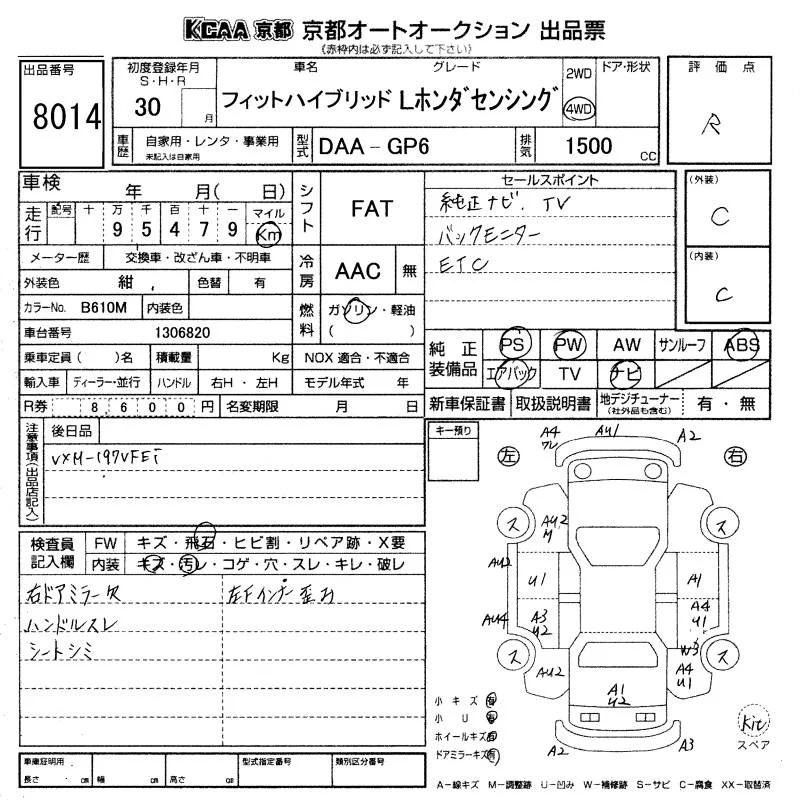 KCAA 京都 京都オートオークション 出品票
(赤枠内は必ず記入して下さい)
出品番号
8014
初度登録年月
S・H・R
30 月
車名 グレード
フィットハイブリッド Lホンダセンシング
2WD
4WD
ドア・形状
評価点
R
車歴 自家用・レンタ・事業用
未記入は自家用
型式 DAA-GP6
排気 1500 cc
車検 年 月( 日)
走行 記号 十 万 千 百 十 一 マイル
9 5 4 7 9 Km
メーター歴 交換車・改ざん車・不明車
外装色 紺 色替 有
カラーNo. B610M 内装色
車台番号 1306820
乗車定員( )名 積載量 Kg
輸入車 ディーラー・並行 ハンドル 右H・左H
R券 8,600円 名変期限 月 日
シフト FAT
冷房 AAC 無
燃料 ガソリン・軽油
( )
NOX 適合・不適合
モデル年式 年
セールスポイント
純正ナビ、TV
バックモニター
ETC
(外装)
C
(内装)
C
純正装備品 PS PW AW サンルーフ ABS
エアバック TV ナビ
新車保証書 取扱説明書 地デジチューナー
(社外品も含む)
有・無
注意事項(出品店記入)
後日品
VXM-197VFEi
キー預り
検査員記入欄
FW キズ・飛石・ヒビ割・リペア跡・X要
内装 キズ・汚レ・コゲ・穴・スレ・キレ・破レ
右ドアミラー欠
左Fインナー歪み
ハンドルスレ
シートシミ
左
右
A4
ワレ
AU1
A2
ス
ス
AU2
M
AU2
U1
A1
AU4
A3
U2
A4
U1
W3
ス
ス
AU2
A4
U1
A1
U2
A2
A3
小キズ 有
小U 有
ホイールキズ 有
ドアミラーキズ 有
Kit
スペア
車庫証明用
長さ cm 幅 cm 高さ cm
型式指定番号
類別区分番号
A-線キズ M-調整跡 U-凹み W-補修跡 S-サビ C-腐食 XX-取替済